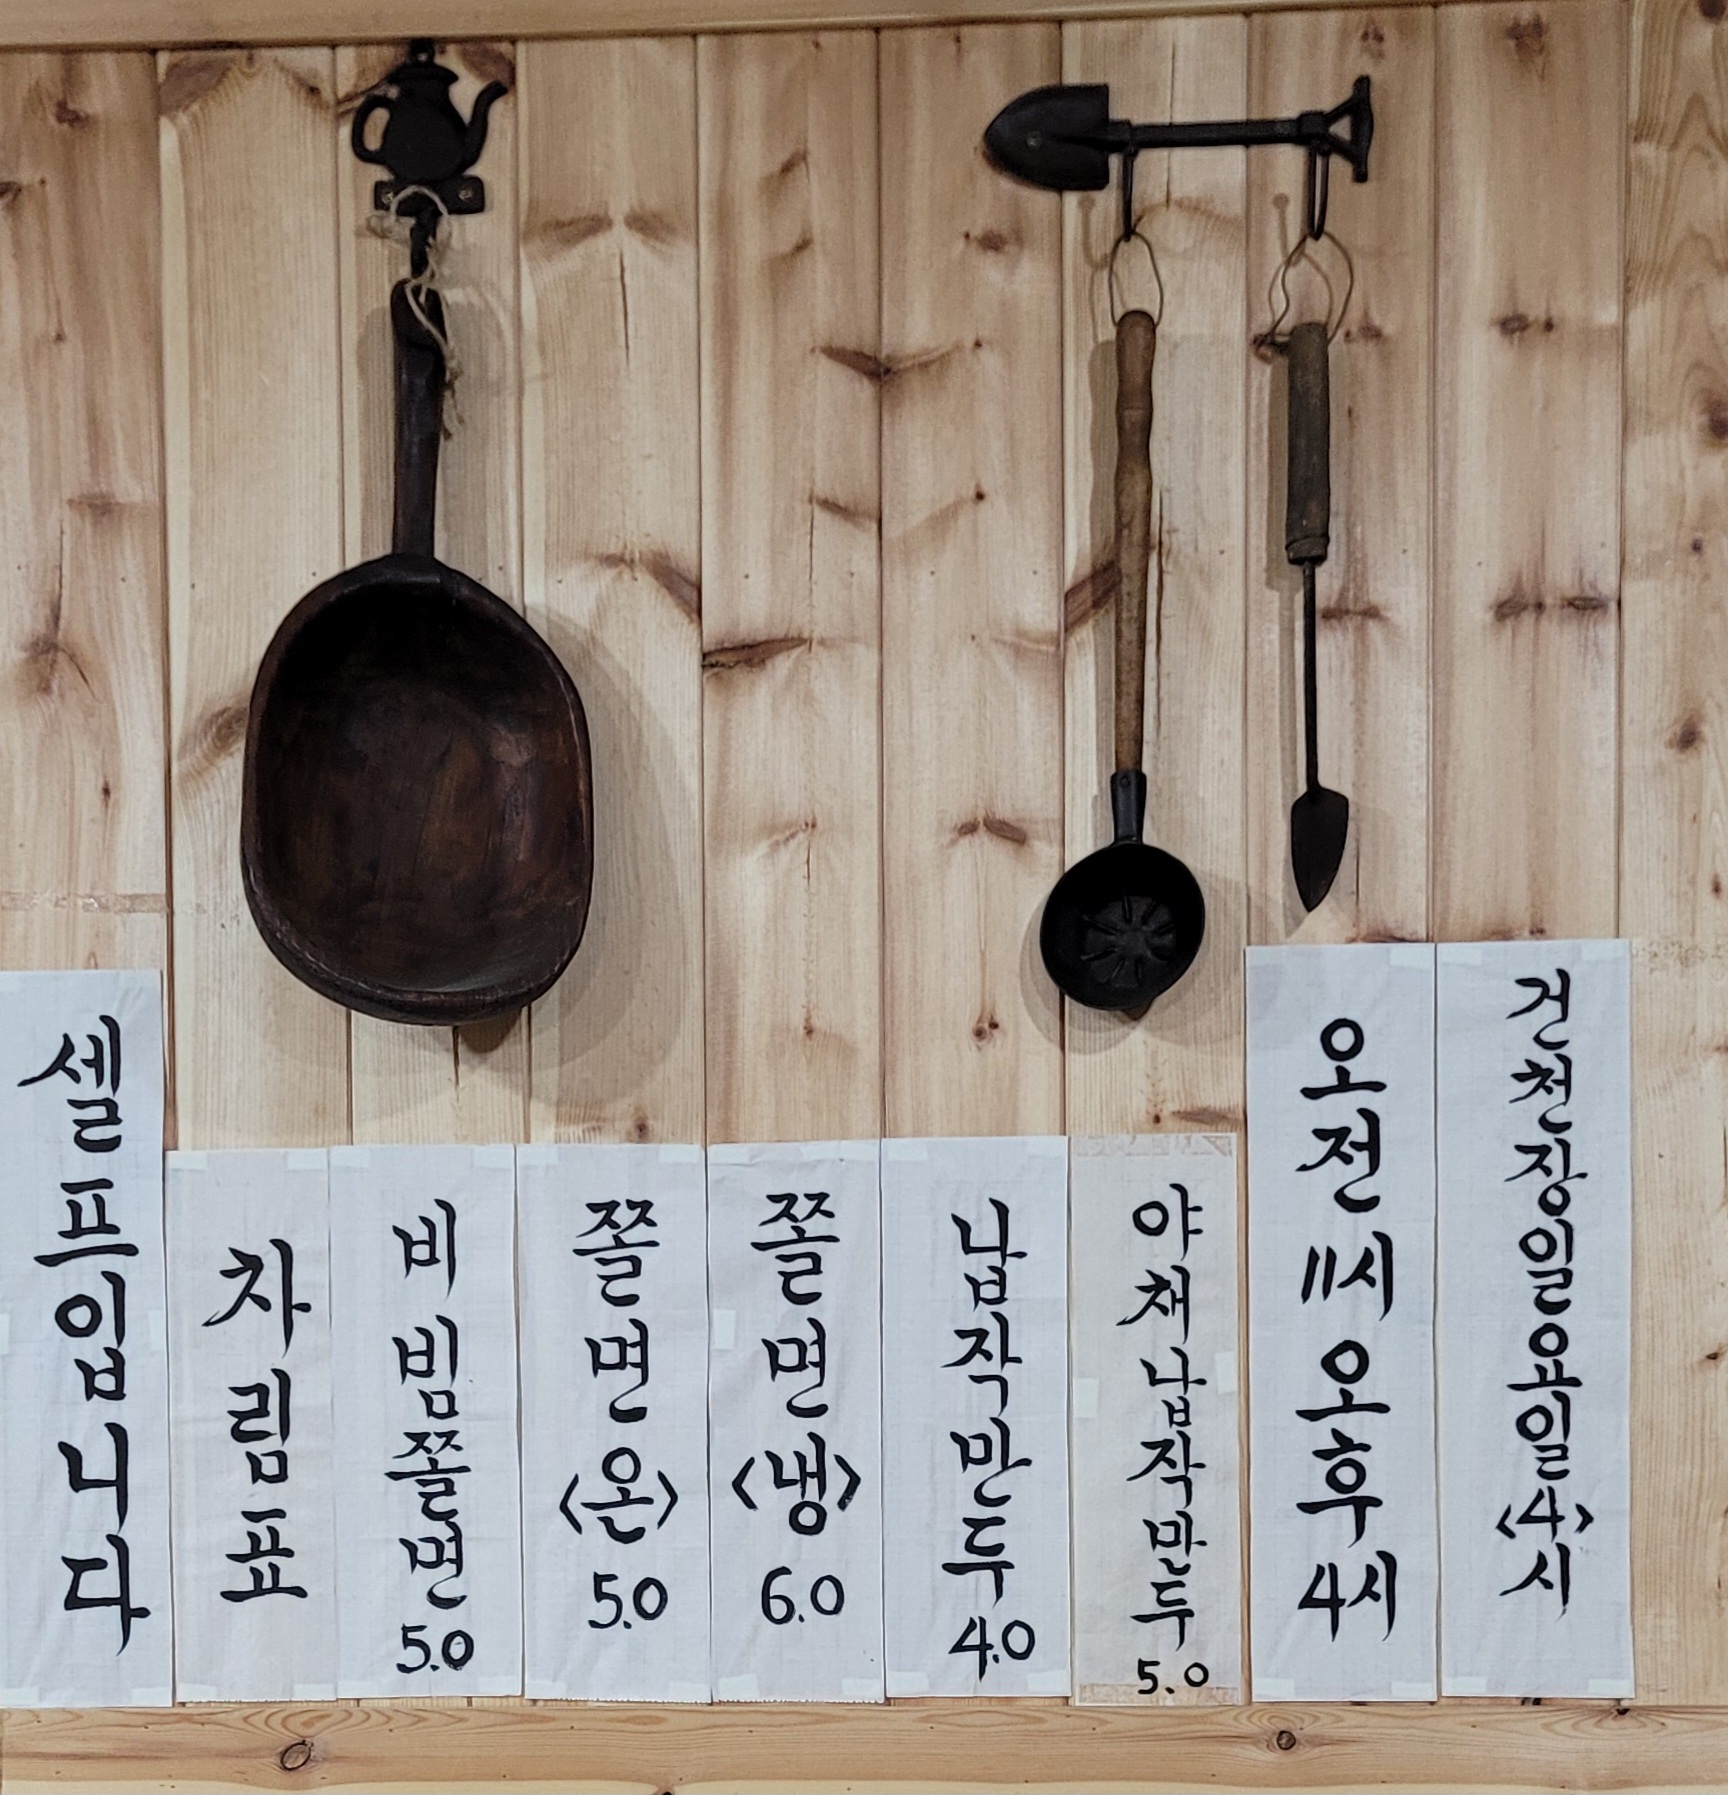 셀프입니다
차림표
비빔쫄면 5.0
쫄면 <온> 5.0
쫄면 <냉> 6.0
납작만두 4.0
야채납작만두 5.0
오전 11시 오후 4시
건천장일요일<4>시